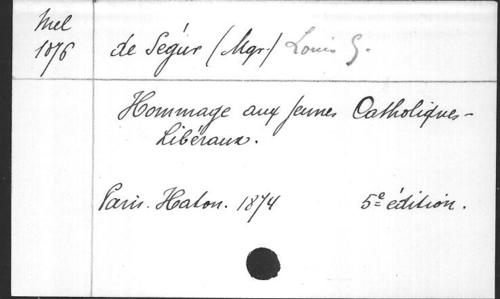 Mel
1076
de Ségur (Mgr) Louis G.
Hommage aux jeunes Catholiques-
Libéraux.
Paris. Haton. 1874 5e édition.